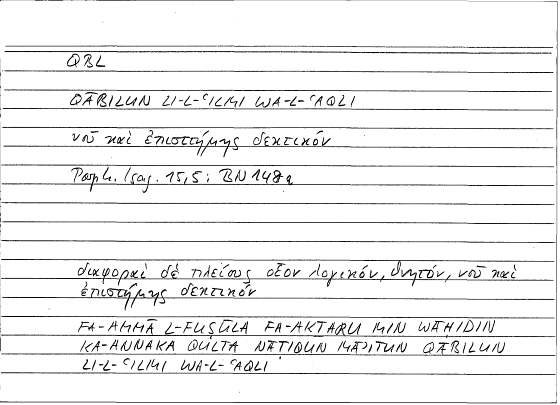 QBL
QĀBILUN LI-L-ʿILMI WA-L-ʿAQLI
νοῦ καὶ ἐπιστήμης δεκτικόν
Porph. Isag. 15,5; BN 148a
διαφοραὶ δὲ πλείους οἷον λογικόν, θνητόν, νοῦ καὶ
ἐπιστήμης δεκτικόν
FA-AMMĀ L-FUṢŪLA FA-AKTARU MIN WĀḤIDIN
KA-ANNAKA QULTA NĀṬIQUN MĀʾITUN QĀBILUN
LI-L-ʿILMI WA-L-ʿAQLI